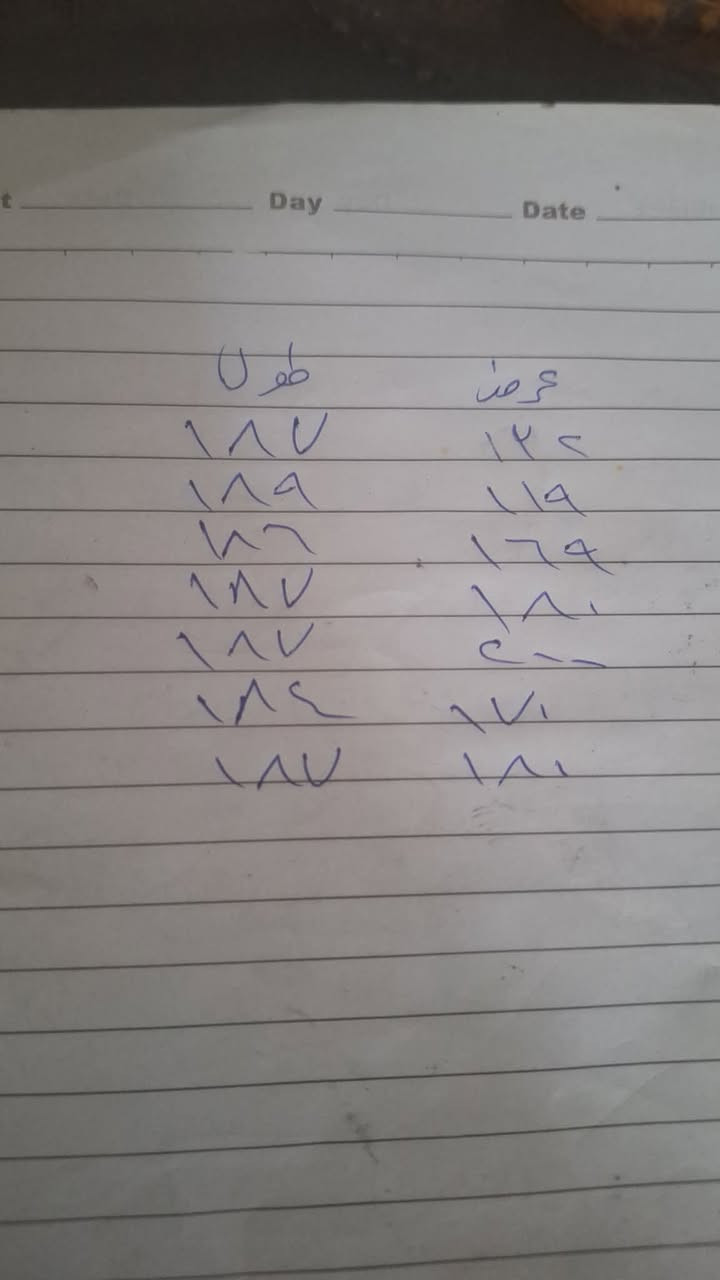 t Day Date
عرض طول
١٣٢ ١٨٧
١١٩ ١٨٩
١٦٩ ١٨٦
١٨٠ ١٨٧
٢٠٠ ١٨٧
١٧٠ ١٨٤
١٨٧